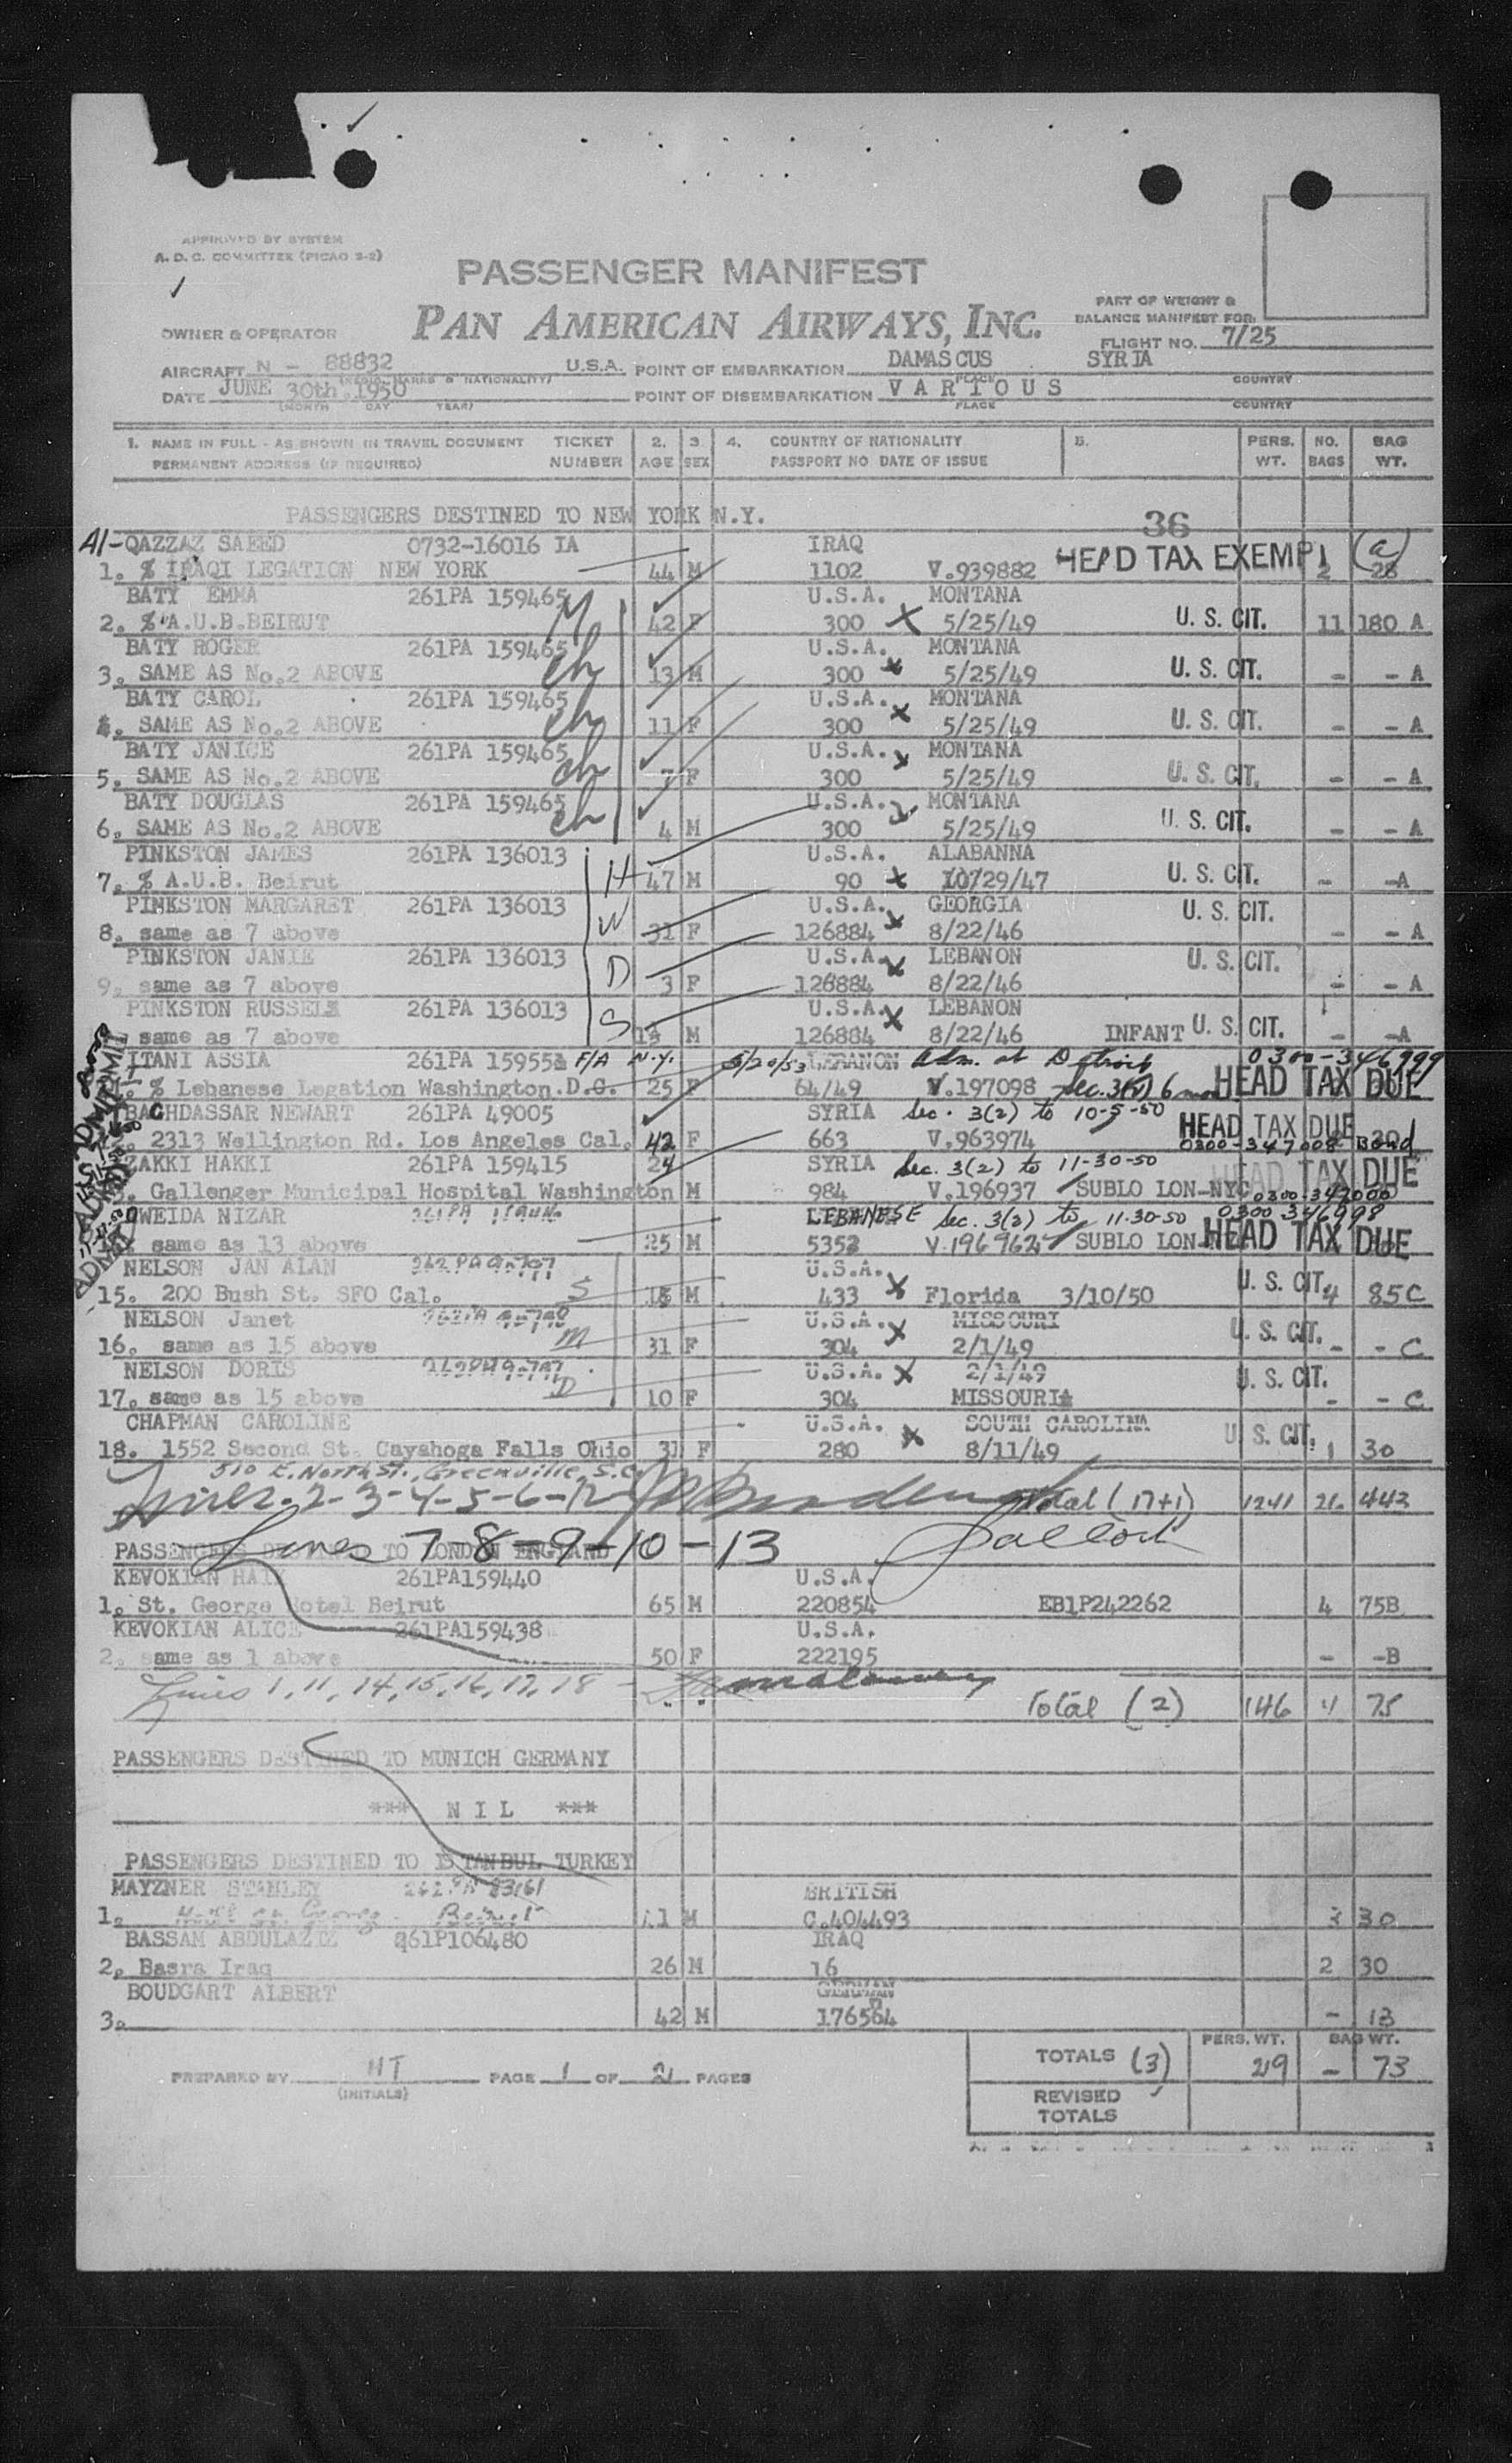 APPROVED BY SYSTEM
A. D. C. COMMITTEE (PICAO 2-2)
PASSENGER MANIFEST
PAN AMERICAN AIRWAYS, INC.
PART OF WEIGHT &
BALANCE MANIFEST FOR:
OWNER & OPERATOR
FLIGHT NO. 7/25
AIRCRAFT N - 88832 U.S.A. POINT OF EMBARKATION DAMASCUS SYRIA
DATE JUNE 30th, 1950 POINT OF DISEMBARKATION VARIOUS
(MONTH DAY YEAR) PLACE COUNTRY
1. NAME IN FULL - AS SHOWN IN TRAVEL DOCUMENT TICKET 2. 3. 4. COUNTRY OF NATIONALITY 5. PERS. NO. BAG
PERMANENT ADDRESS (IF REQUIRED) NUMBER AGE SEX PASSPORT NO DATE OF ISSUE WT. BAGS WT.
PASSENGERS DESTINED TO NEW YORK N.Y.
36
Al-QAZZAZ SAEED 0732-16016 IA IRAQ HEAD TAX EXEMPT (a)
1. % IRAQI LEGATION NEW YORK 44 M 1102 V.939882 2 28
BATY EMMA 261PA 159465 M U.S.A. MONTANA
2. % A.U.B. BEIRUT 42 F 300 X 5/25/49 U. S. CIT. 11 180 A
BATY ROGER 261PA 159465 U.S.A. MONTANA
3. SAME AS No.2 ABOVE ch 13 M 300 X 5/25/49 U. S. CIT. - - A
BATY CAROL 261PA 159465 U.S.A. MONTANA
4. SAME AS No.2 ABOVE ch 11 F 300 X 5/25/49 U. S. CIT. - - A
BATY JANICE 261PA 159465 U.S.A. X MONTANA
5. SAME AS No.2 ABOVE ch 7 F 300 5/25/49 U. S. CIT. - - A
BATY DOUGLAS 261PA 159465 U.S.A. MONTANA
6. SAME AS No.2 ABOVE ch 4 M 300 5/25/49 U. S. CIT. - - A
PINKSTON JAMES 261PA 136013 U.S.A. ALABANNA
7. % A.U.B. Beirut H 47 M 90 X 10/29/47 U. S. CIT. - -A
PINKSTON MARGARET 261PA 136013 U.S.A. GEORGIA
8. same as 7 above W 31 F 126884 X 8/22/46 U. S. CIT. - - A
PINKSTON JANIE 261PA 136013 U.S.A. LEBANON
9. same as 7 above D 3 F 126884 X 8/22/46 U. S. CIT. - - A
PINKSTON RUSSELL 261PA 136013 U.S.A. LEBANON
same as 7 above S M 126884 X 8/22/46 INFANT U. S. CIT. - -A
ITANI ASSIA 261PA 159552 F/A N.Y. 5/20/53 LEBANON Adm. at Detroit 0300-346999
% Lebanese Legation Washington.D.C. 25 F 64/49 V.197098 Sec. 3(2) 6 mos HEAD TAX DUE
BAGHDASSAR NEWART 261PA 49005 SYRIA Sec. 3(2) to 10-5-50 HEAD TAX DUE
2313 Wellington Rd. Los Angeles Cal. 42 F 663 V.963974 0300-347008 Bond
ZAKKI HAKKI 261PA 159415 24 SYRIA Sec. 3(2) to 11-30-50 HEAD TAX DUE
Gallenger Municipal Hospital Washington M 984 V.196937 SUBLO LON-NYC 0300-347000
OWEIDA NIZAR LEBANESE Sec. 3(2) to 11-30-50 0300 346998
same as 13 above 25 M 5352 V.196962 SUBLO LON HEAD TAX DUE
NELSON JAN ALAN U.S.A.
15. 200 Bush St. SFO Cal. S M 433 X Florida 3/10/50 U. S. CIT. 4 85C
NELSON Janet U.S.A. MISSOURI
16. same as 15 above M 31 F 304 X 2/1/49 U. S. CIT. - - C
NELSON DORIS U.S.A. X 2/1/49
17. same as 15 above D 10 F 304 MISSOURI U. S. CIT. - - C
CHAPMAN CAROLINE U.S.A. SOUTH CAROLINA
18. 1552 Second St. Cayahoga Falls Ohio 31 F 280 X 8/11/49 U. S. CIT. 1 30
510 E. North St., Greenville, S.C.
Lines. 2-3-4-5-6-12 Total (17+1) 1241 21. 443
Lines 7-8-9-10-13
PASSENGERS DESTINED TO LONDON ENGLAND
KEVOKIAN HAIK 261PA159440 U.S.A.
1. St. George Hotel Beirut 65 M 220854 EB1P242262 4 75B
KEVOKIAN ALICE 261PA159438 U.S.A.
2. same as 1 above 50 F 222195 - -B
Lines 1, 11, 14, 15, 16, 17, 18 - Total (2) 146 4 75
PASSENGERS DESTINED TO MUNICH GERMANY
*** NIL ***
PASSENGERS DESTINED TO ISTANBUL TURKEY
MAYZNER STANLEY 262PA 83161 BRITISH
1. Hotel St. George Beirut M C.404493 30
BASSAM ABDULAZIZ 261P106480 IRAQ
2. Basra Iraq 26 M 16 2 30
BOUDGART ALBERT GERMAN
3. 42 M 176564 - 13
PERS. WT. BAG WT.
TOTALS (3) 219 - 73
PREPARED BY HT PAGE 1 OF 2 PAGES
(INITIALS)
REVISED
TOTALS